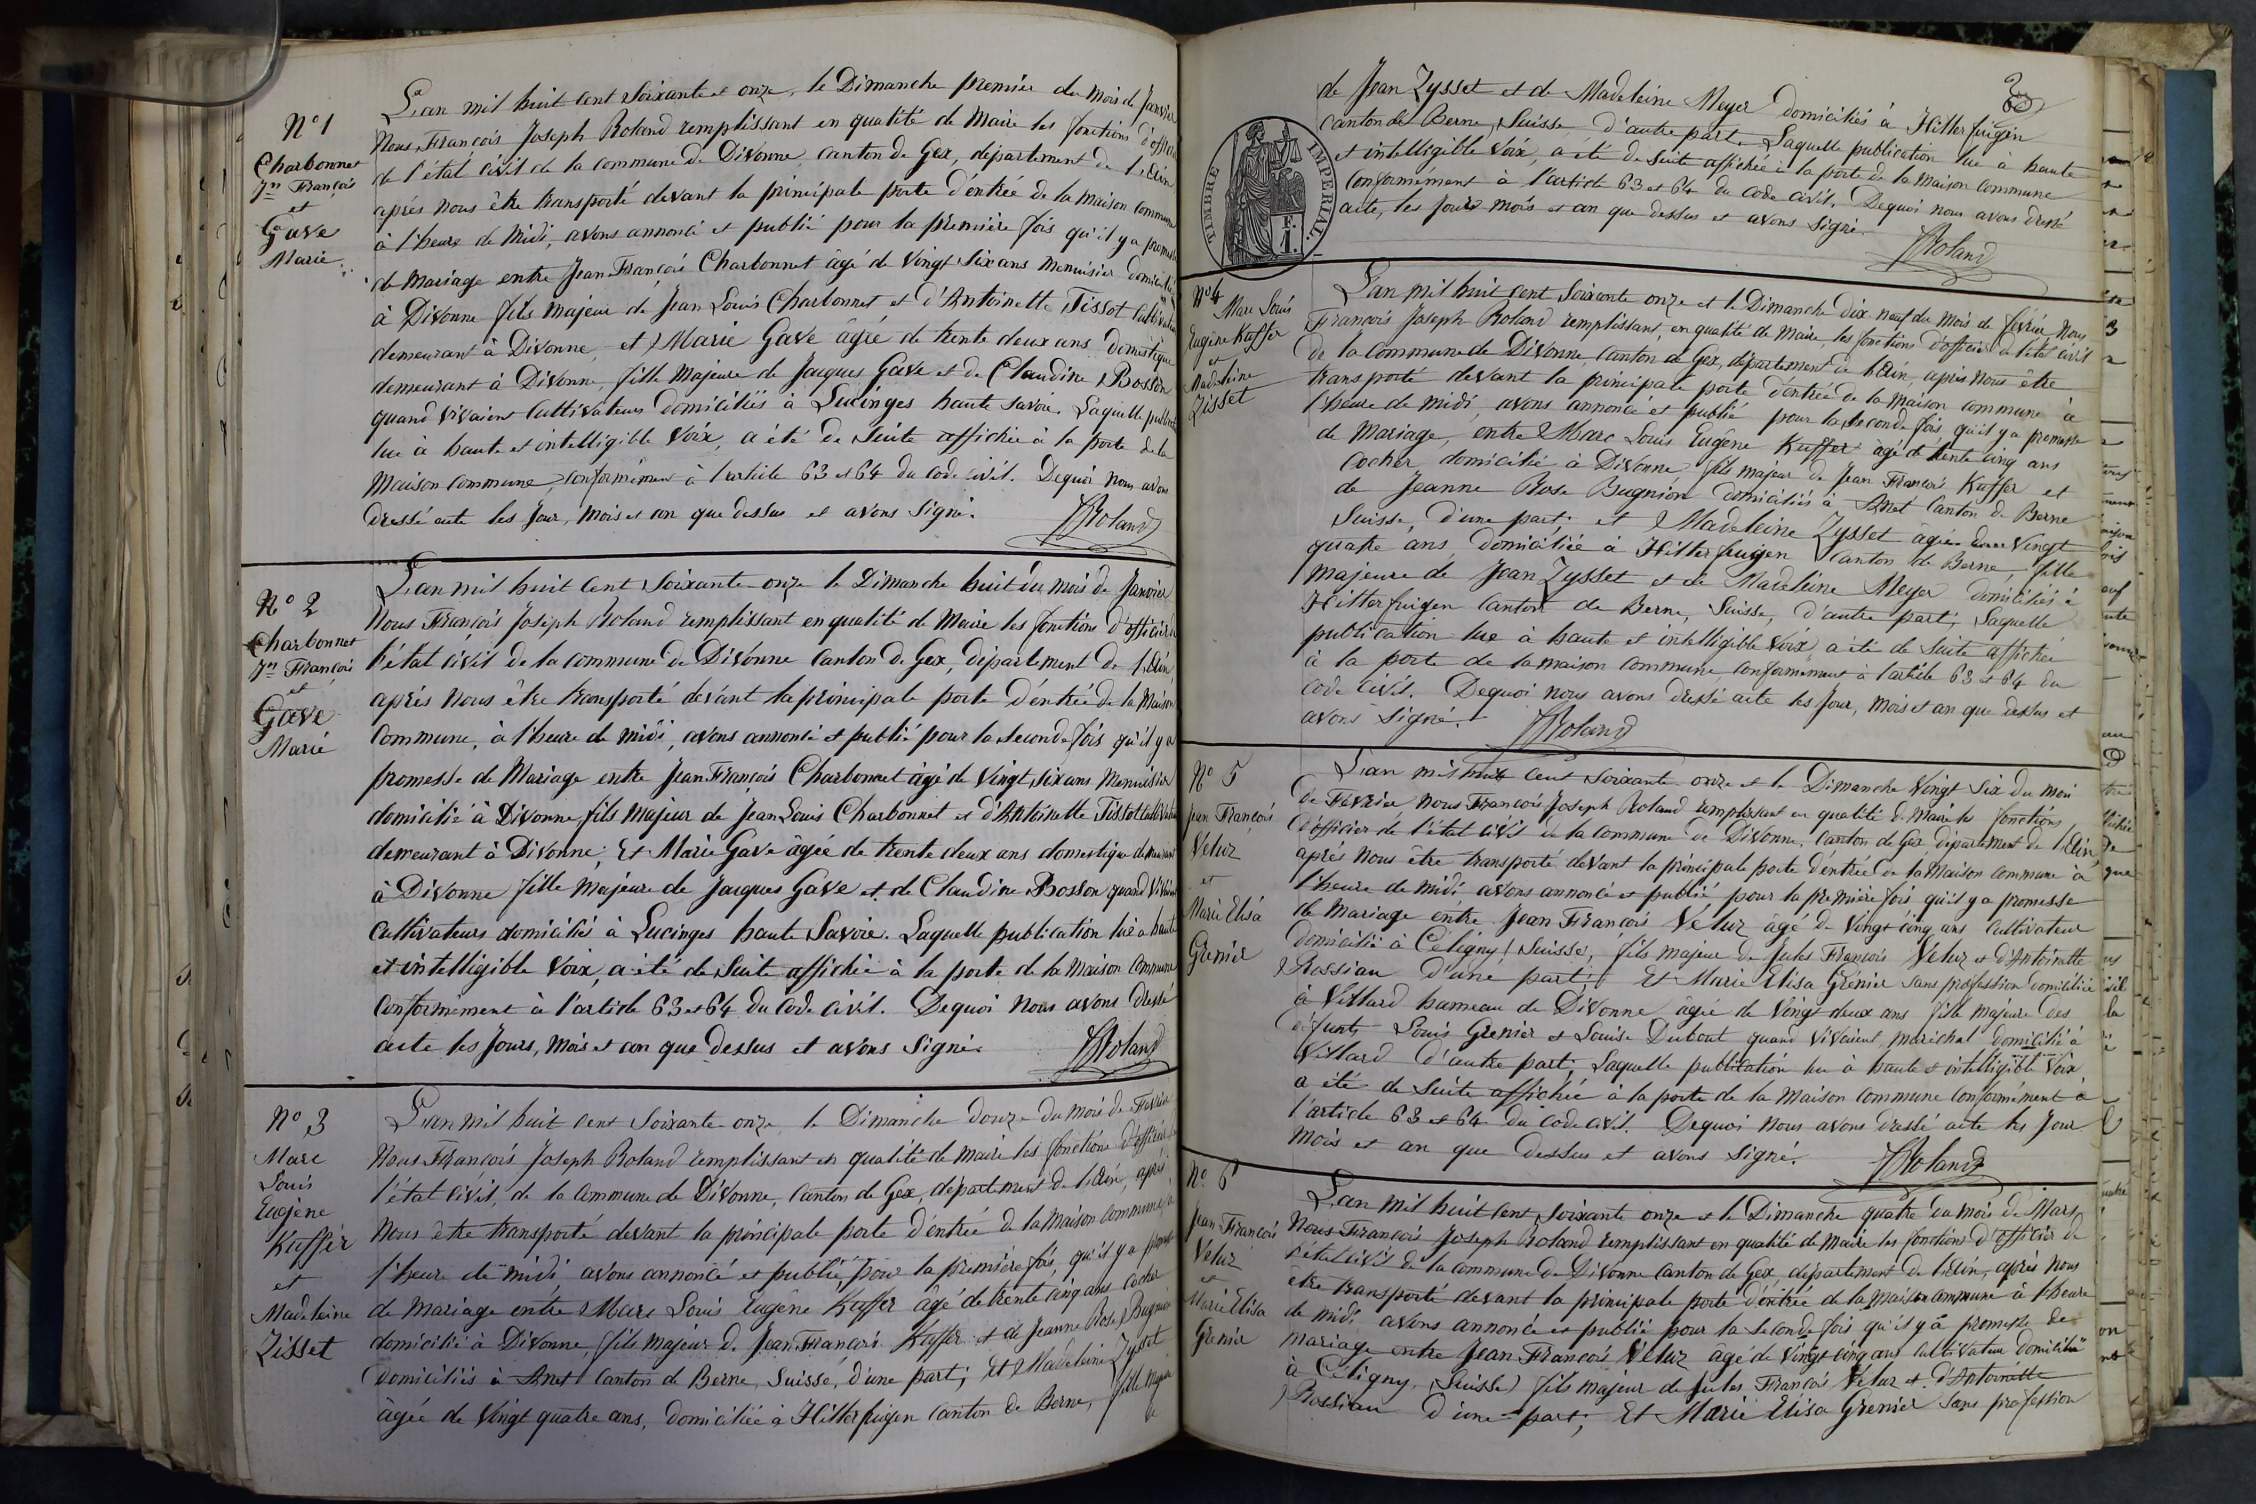 N° 1
Charbonnet
Jn François
et
Gave
Marie
L'an mil huit cent soixante et onze, le Dimanche premier du mois de Janvier
Nous François Joseph Roland remplissant en qualité de Maire les fonctions d'officier
de l'état civil de la commune de Divonne, canton de Gex, département de l'Ain
après nous être transporté devant la principale porte d'entrée de la maison commune
à l'heure de Midi, avons annoncé et publié pour la première fois qu'il y a promesse
de mariage entre Jean François Charbonnet âgé de vingt six ans menuisier domicilié
à Divonne fils majeur de Jean Louis Charbonnet et d'Antoinette Tissot cultivateurs
demeurant à Divonne, et Marie Gave âgée de trente deux ans domestique
demeurant à Divonne, fille majeure de Jacques Gave et de Claudine Bosson
quand vivaient cultivateurs domiciliés à Lucinges haute savoie. Laquelle publication
lue à haute et intelligible voix, a été de suite affichée à la porte de la
Maison commune, conformément à l'article 63 et 64 du code civil. Dequoi nous avons
dressé acte les jour, mois et an que dessus et avons signé.
JRoland
N° 2
Charbonnet
Jn François
et
Gave
Marie
L'an mil huit cent soixante onze le Dimanche huit du mois de Janvier
Nous François Joseph Roland remplissant en qualité de Maire les fonctions d'officier de
l'état civil de la commune de Divonne canton de Gex, département de l'Ain,
après nous être transporté devant la principale porte d'entrée de la Maison
commune, à l'heure de midi, avons annoncé et publié pour la seconde fois qu'il y a
promesse de Mariage entre Jean François Charbonnet âgé de vingt six ans Menuisier
domicilié à Divonne, fils majeur de Jean Louis Charbonnet et d'Antoinette Tissot cultivateurs
demeurant à Divonne; Et Marie Gave âgée de trente deux ans domestique demeurant
à Divonne fille majeure de Jacques Gave et de Claudine Bosson quand vivaient
cultivateurs domiciliés à Lucinges haute Savoie. Laquelle publication lue à haute
et intelligible voix, a été de suite affichée à la porte de la maison commune
conformément à l'article 63 et 64 du code civil. Dequoi nous avons dressé
acte les jours, mois et an que dessus et avons signé.
JRoland
N° 3
Marc
Louis
Eugène
Kuffer
et
Madeleine
Zisset
L'an mil huit cent soixante onze, le Dimanche douze du mois de Février
Nous François Joseph Roland remplissant en qualité de maire les fonctions d'officier de
l'état civil, de la commune de Divonne, canton de Gex, département de l'Ain, après
nous être transporté devant la principale porte d'entrée de la maison commune, à
l'heure de midi avons annoncé et publié, pour la première fois, qu'il y a promesse
de mariage entre Marc Louis Eugène Kuffer âgé de trente cinq ans cocher
domicilié à Divonne, fils majeur de Jean François Kuffer et de Jeanne Rose Bugnion
domiciliés à Anet canton de Berne, Suisse, d'une part; Et Madeleine Zysset
âgée de vingt quatre ans, domiciliée à Hitterfingen canton de Berne, fille majeure
de
de Jean Zysset et de Madeleine Meyer domiciliés à Hitterfingen
canton de Berne, Suisse, d'autre part. Laquelle publication lue à haute
et intelligible voix, a été de suite affichée à la porte de la maison commune
conformément à l'article 63 et 64 du code civil. Dequoi nous avons dressé
acte, les jours mois et an que dessus et avons signé.
JRoland
TIMBRE IMPERIAL
F.
1.
N° 4
Marc Louis
Eugène Kuffer
et
Madeleine
Zisset
L'an mil huit cent soixante onze et le Dimanche dix neuf du mois de février, Nous
François Joseph Roland remplissant, en qualité de Maire, les fonctions d'officier de l'état civil
de la commune de Divonne, canton de Gex, département de l'Ain, après nous être
transporté devant la principale porte d'entrée de la maison commune à
l'heure de midi, avons annoncé et publié pour la seconde fois qu'il y a promesse
de mariage, entre Marc Louis Eugène Kuffer âgé de trente cinq ans
cocher domicilié à Divonne fils majeur de Jean François Kuffer et
de Jeanne Rose Bugnion domiciliés à Anet canton de Berne
Suisse, d'une part; et Madeleine Zysset âgée de vingt
quatre ans, domiciliée à Hitterfingen canton de Berne, fille
majeure de Jean Zysset et de Madeleine Meyer domiciliés à
Hitterfingen canton de Berne, Suisse, d'autre part; Laquelle
publication lue à haute et intelligible voix a été de suite affichée
à la porte de la maison commune conformément à l'article 63 et 64 du
code civil. Dequoi nous avons dressé acte les jour, mois et an que dessus et
avons signé.
JRoland
N° 5
Jean François
Veluz
et
Marie Elisa
Grenier
L'an mil huit cent soixante onze et le Dimanche vingt six du mois
de Février nous François Joseph Roland remplissant en qualité de Maire les fonctions
d'officier de l'état civil de la commune de Divonne, canton de Gex département de l'Ain,
après nous être transporté devant la principale porte d'entrée de la Maison commune à
l'heure de midi avons annoncé et publié pour la première fois qu'il y a promesse
de mariage entre Jean François Veluz âgé de vingt cinq ans cultivateur
domicilié à Céligny (Suisse), fils majeur de Jules François Veluz et d'Antoinette
Rossiau d'une part; Et Marie Elisa Grenier sans profession domiciliée
à Villard hameau de Divonne âgée de vingt deux ans fille majeure des
défunts Louis Grenier et Louise Dubout quand vivaient, maréchal domicilié à
Villard d'autre part; Laquelle publication lue à haute et intelligible voix
a été de suite affichée à la porte de la maison commune conformément à
l'article 63 et 64 du code civil. Dequoi nous avons dressé acte les jour
mois et an que dessus et avons signé.
JRoland
N° 6
Jean François
Veluz
et
Marie Elisa
Grenier
L'an mil huit cent soixante onze et le Dimanche quatre du mois de Mars
Nous François Joseph Roland remplissant en qualité de Maire les fonctions d'officier de
l'état civil de la commune de Divonne canton de Gex, département de l'Ain, après nous
être transporté devant la principale porte d'entrée de la maison commune à l'heure
de midi avons annoncé et publié pour la seconde fois qu'il y a promesse de
mariage entre Jean François Veluz âgé de vingt cinq ans cultivateur domicilié
à Céligny, (Suisse) fils majeur de Jules François Veluz et d'Antoinette
Rossiau d'une part; Et Marie Elisa Grenier sans profession